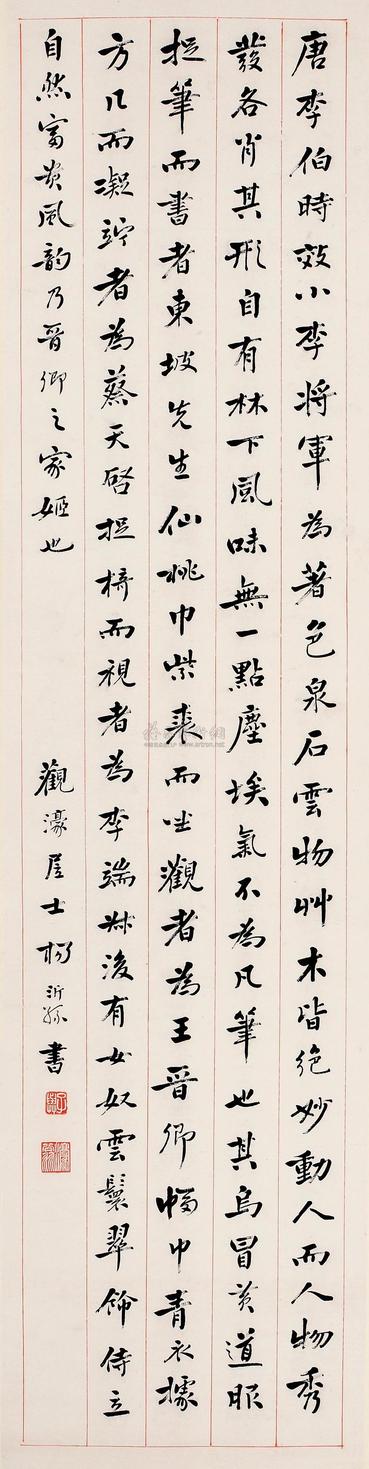 唐李伯時效小李將軍為著色泉石雲物艸木皆絕妙動人而人物秀
發各肖其形自有林下風味無一點塵埃氣不為凡筆也其烏冒黃道服
捉筆而書者東坡先生仙桃巾紫裘而坐觀者為王晉卿幅巾青衣據
方几而凝竚者為蔡天啓捉椅而視者為李端叔後有女奴雲鬟翠飾侍立
自然富貴風韵乃晉卿之家姬也
觀濠居士楊沂孫書